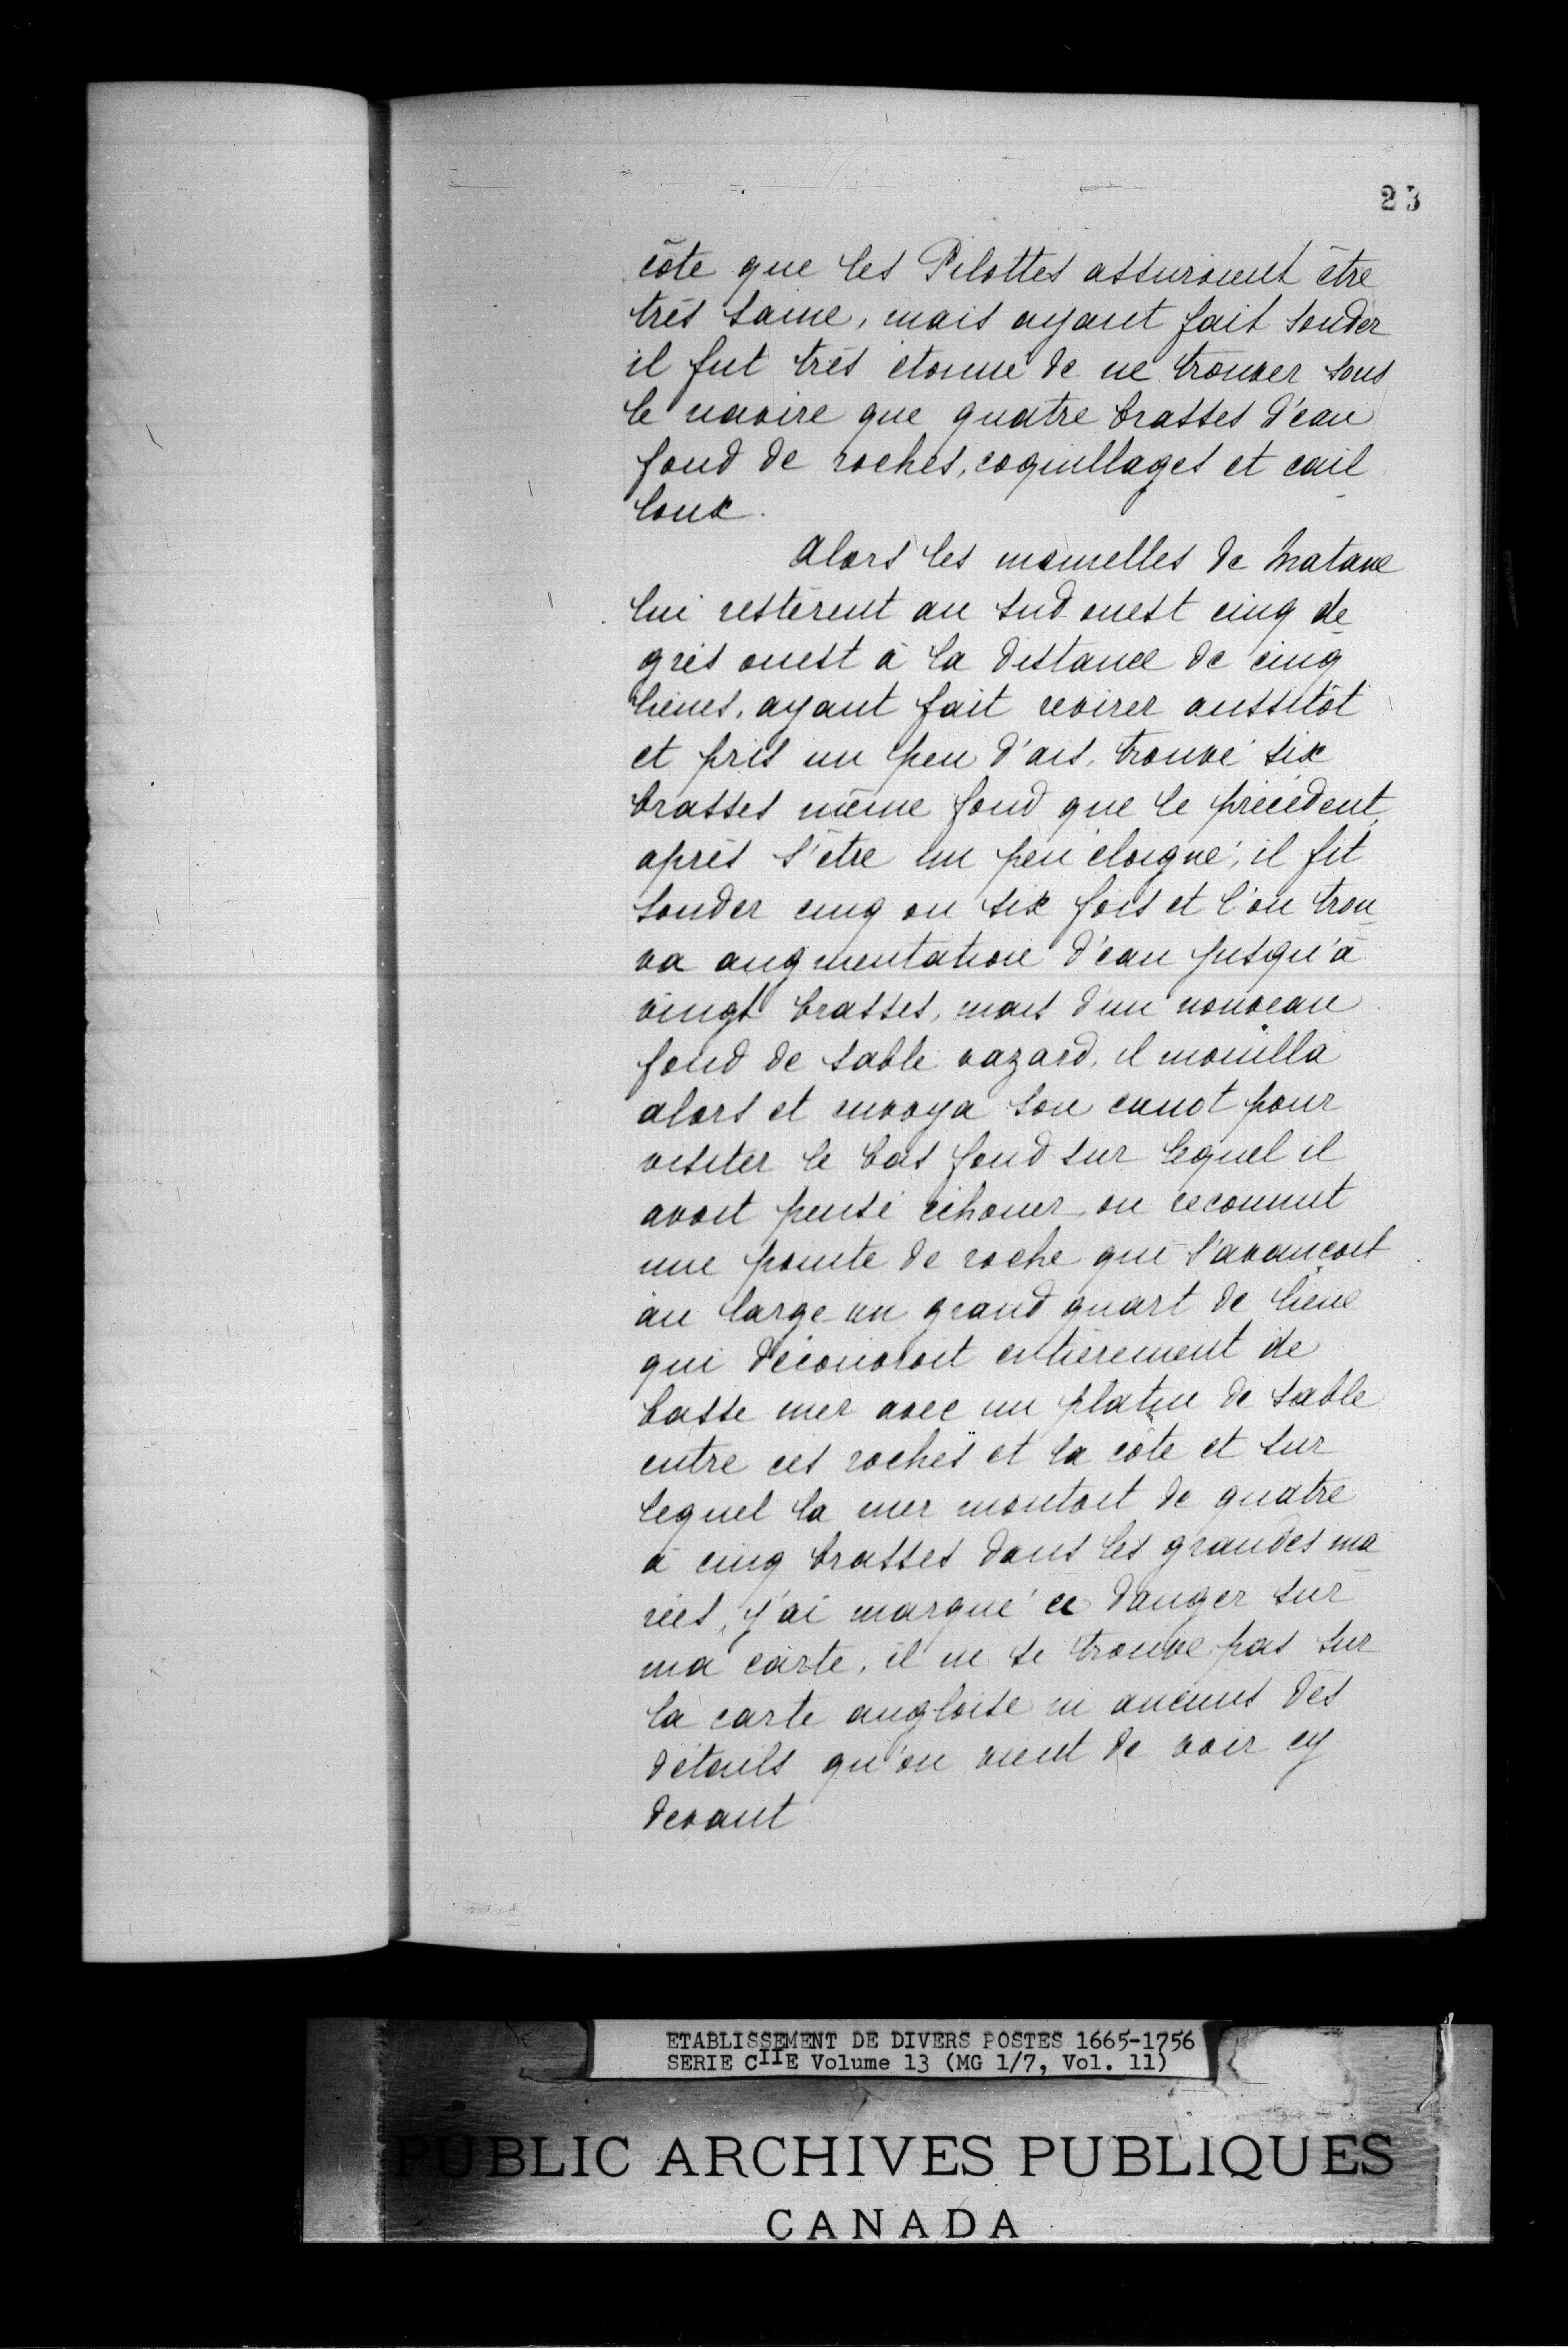 23
côte que les Pilottes assuroient être
très saine, mais ayant fait sonder
il fut très étonné de ne trouver sous
le navire que quatre brasses d'eau
fond de roches, coquillages et cail
loux.
Alors les mamelles de Matane
lui restèrent au sud ouest cinq de
grés ouest à la distance de cinq
lieues, ayant fait revirer aussitôt
et pris un peu d'ais, trouvé six
brasses même fond que le précédent
après s'être un peu éloigné, il fit
sonder cinq ou six fois et l'on trou
va augmentation d'eau jusqu'à
vingt brasses, mais d'un nouveau
fond de sable vazard, il mouilla
alors et envoya son canot pour
visiter le bas fond sur lequel il
avoit pensé échouer, on reconnut
une pointe de roche qui s'avançoit
au large un grand quart de lieue
qui découvroit entièrement de
basse mer avec un platin de sable
entre ces roches et la côte et sur
lequel la mer montoit de quatre
à cinq brasses dans les grandes ma
rées, j'ai marqué ce danger sur
ma carte, il ne se trouve pas sur
la carte angloise ni aucuns des
détails qu'on vient de voir cy
devant
ETABLISSEMENT DE DIVERS POSTES 1665-1756
SERIE CIIE Volume 13 (MG 1/7, Vol. 11)
PUBLIC ARCHIVES PUBLIQUES
CANADA